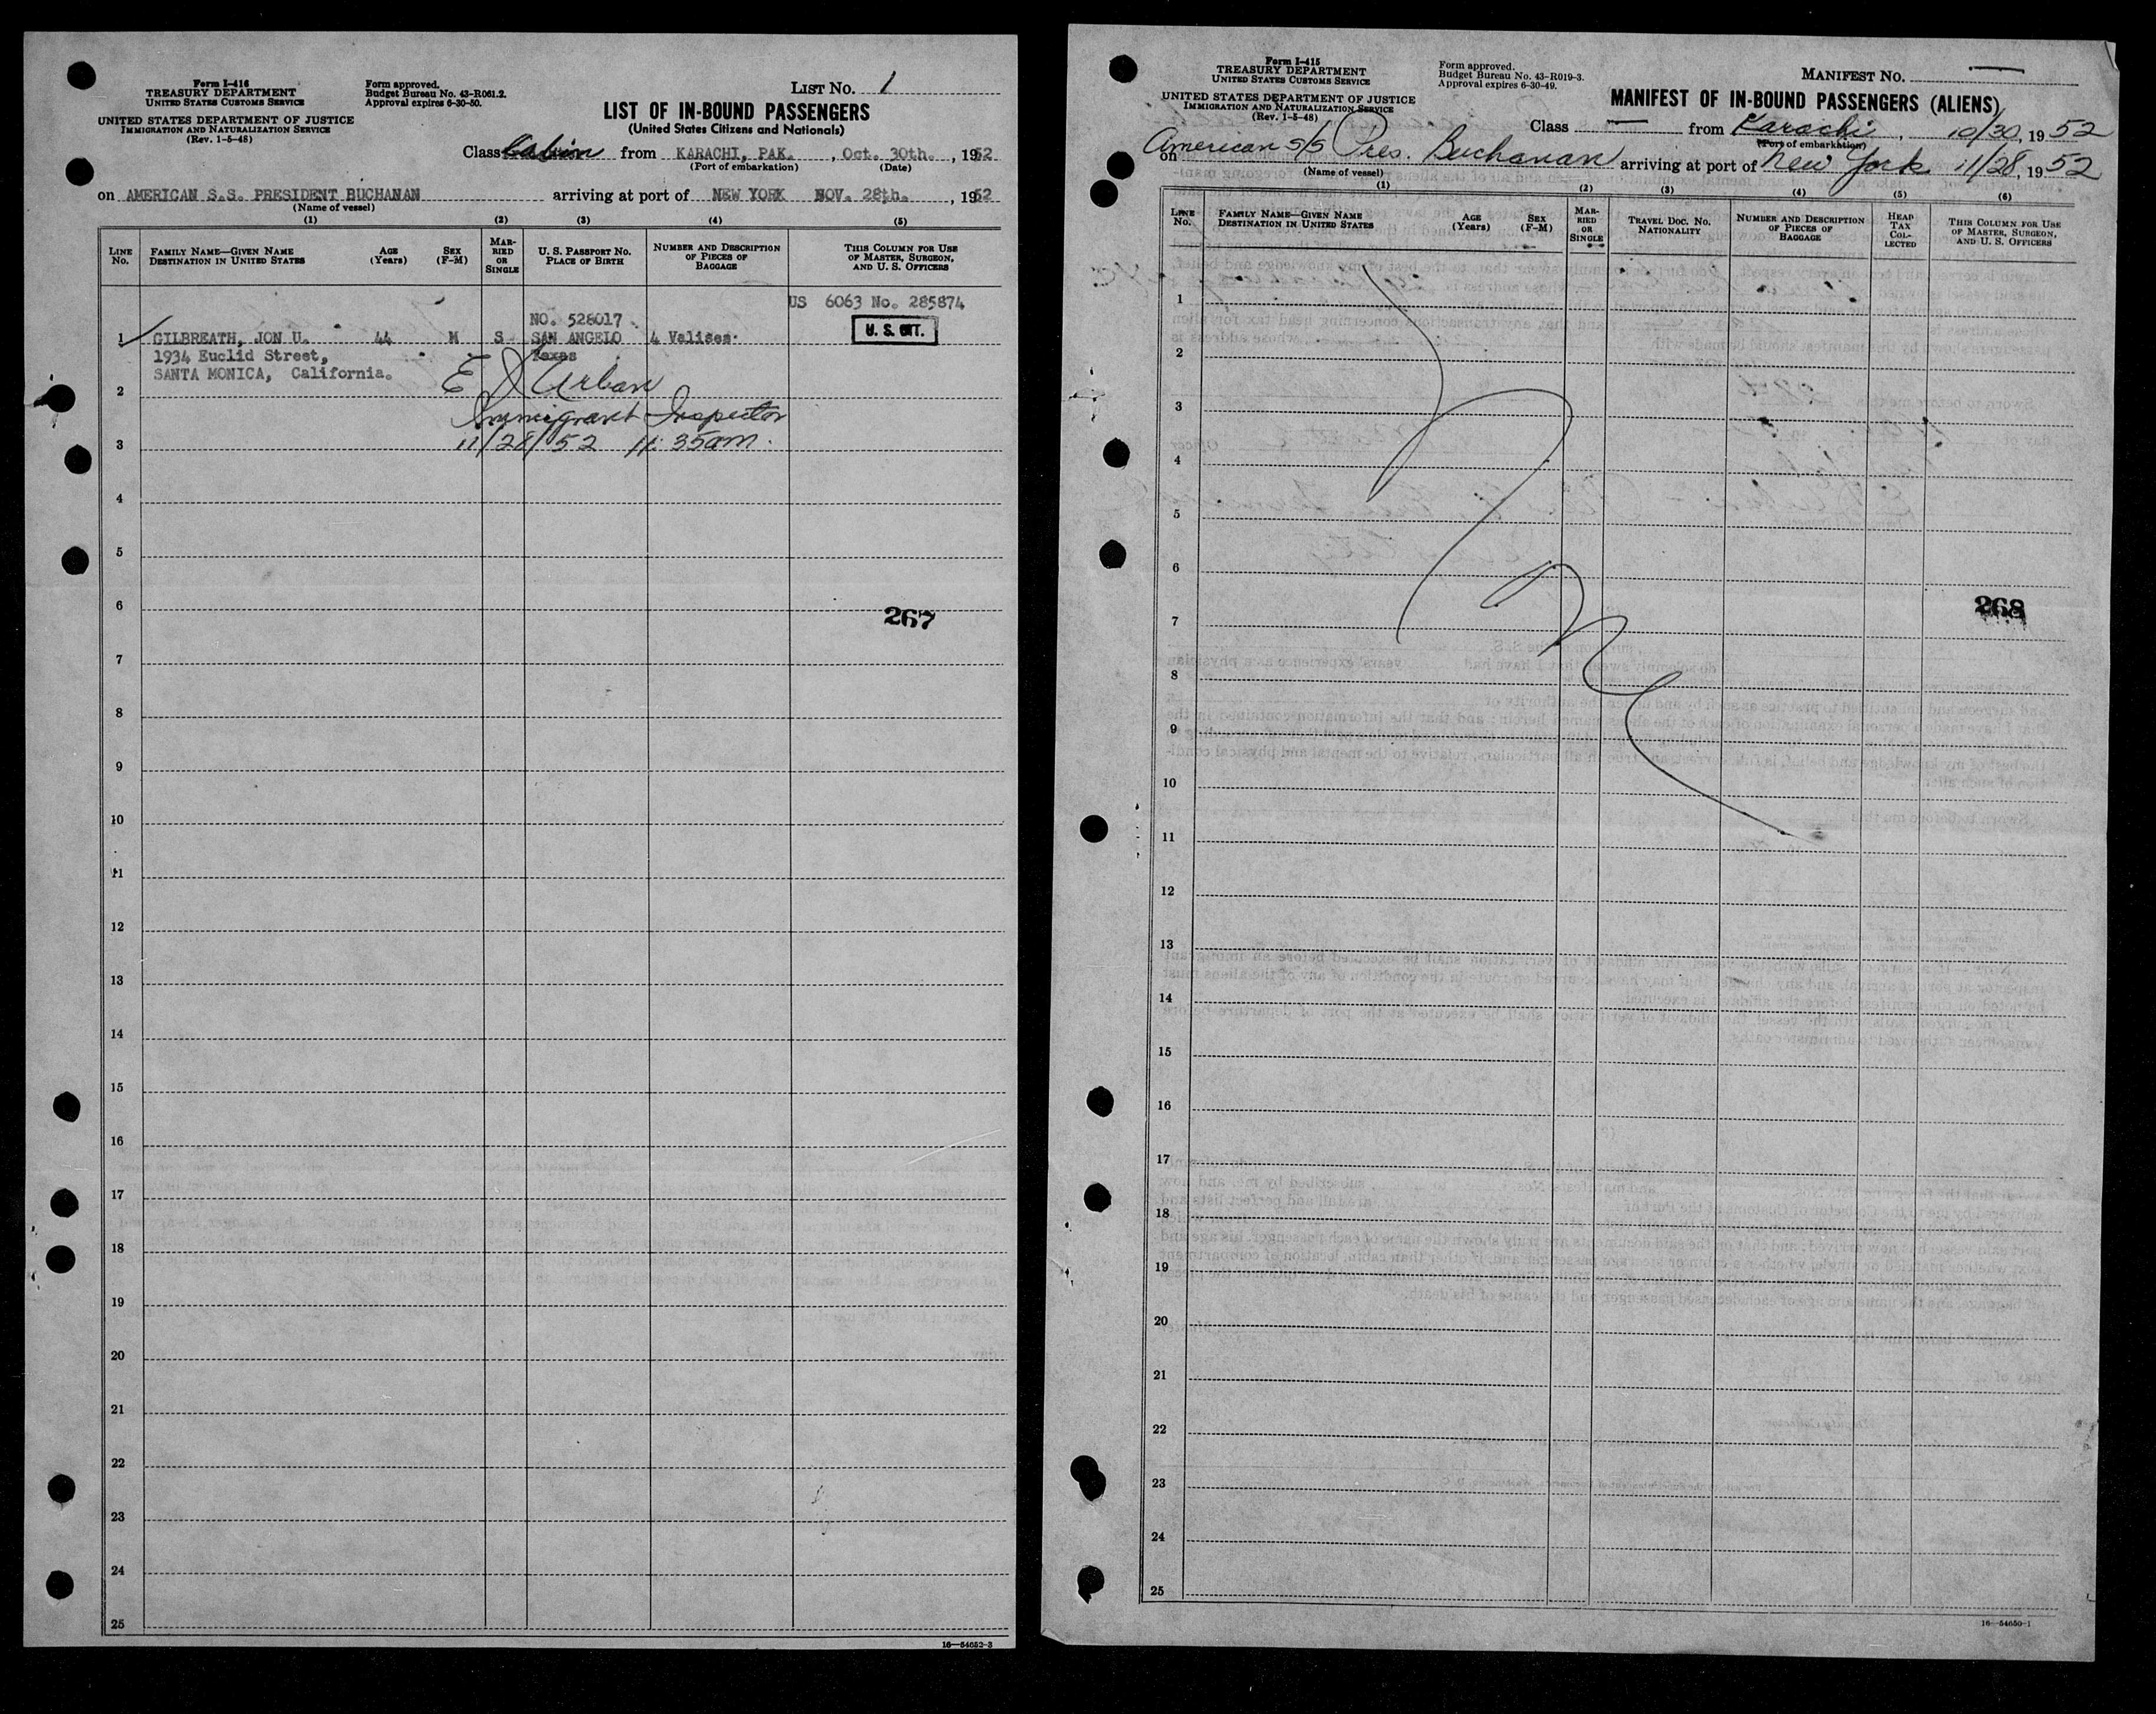 Form I-416
TREASURY DEPARTMENT
UNITED STATES CUSTOMS SERVICE
UNITED STATES DEPARTMENT OF JUSTICE
IMMIGRATION AND NATURALIZATION SERVICE
(Rev. 1-5-48)
Form approved.
Budget Bureau No. 43-R061.2.
Approval expires 6-30-50.
LIST No. 1
LIST OF IN-BOUND PASSENGERS
(United States Citizens and Nationals)
Class Cabin from KARACHI, PAK. , Oct. 30th. , 1952
(Port of embarkation) (Date)
on AMERICAN S.S. PRESIDENT BUCHANAN arriving at port of NEW YORK NOV. 28th. , 1952
(Name of vessel)
(1) (2) (3) (4) (5)
LINE No.
FAMILY NAME—GIVEN NAME
DESTINATION IN UNITED STATES
AGE (Years)
SEX (F-M)
MARRIED OR SINGLE
U. S. PASSPORT NO.
PLACE OF BIRTH
NUMBER AND DESCRIPTION OF PIECES OF BAGGAGE
THIS COLUMN FOR USE OF MASTER, SURGEON, AND U. S. OFFICERS
US 6063 No. 285874
NO. 528017
1 GILBREATH, JON U. 44 M S SAN ANGELO 4 Valises U. S. CIT.
1934 Euclid Street, Texas
SANTA MONICA, California.
E D Urban
2
Immigrant Inspector
3 11/28/52 11:35am.
4
5
6
267
7
8
9
10
11
12
13
14
15
16
17
18
19
20
21
22
23
24
25
16—54652-3
Form I-415
TREASURY DEPARTMENT
UNITED STATES CUSTOMS SERVICE
UNITED STATES DEPARTMENT OF JUSTICE
IMMIGRATION AND NATURALIZATION SERVICE
(Rev. 1-5-48)
Form approved.
Budget Bureau No. 43-R019-3.
Approval expires 6-30-49.
MANIFEST No. —
MANIFEST OF IN-BOUND PASSENGERS (ALIENS)
Class — from Karachi , 10/30, 1952
(Port of embarkation)
on American S/S Pres. Buchanan arriving at port of New York 11/28, 1952
(Name of vessel)
(1) (2) (3) (4) (5) (6)
LINE No.
FAMILY NAME—GIVEN NAME
DESTINATION IN UNITED STATES
AGE (Years)
SEX (F-M)
MARRIED OR SINGLE
TRAVEL DOC. NO.
NATIONALITY
NUMBER AND DESCRIPTION OF PIECES OF BAGGAGE
HEAD TAX COLLECTED
THIS COLUMN FOR USE OF MASTER, SURGEON, AND U. S. OFFICERS
1
2
3
4
5
6
268
7
8
9
10
11
12
13
14
15
16
17
18
19
20
21
22
23
24
25
16—54650-1